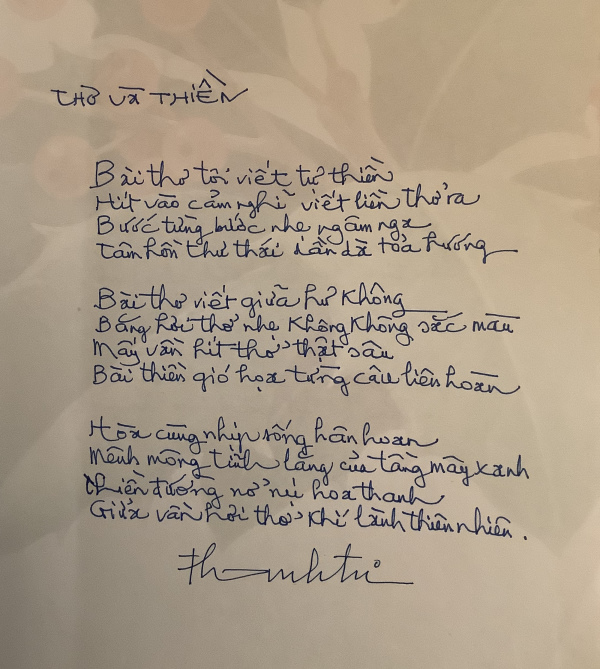 THƠ VÀ THIỀN
Bài thơ tôi viết tự thiền
Hít vào cảm nghĩ viết liền thở ra
Bước từng bước nhẹ ngâm nga
Tâm hồn thư thái dần dà toả hương
Bài thơ viết giữa hư không
Bằng hơi thở nhẹ không không sắc màu
Mấy vần hít thở thật sâu
Bài thiền gió họa từng câu liên hoàn
Hòa cùng nhịp sống hân hoan
Mênh mông tĩnh lặng của tầng mây xanh
Thiền đường nở nụ hoa thanh
Giữa vần hơi thở khí lành thiên nhiên.